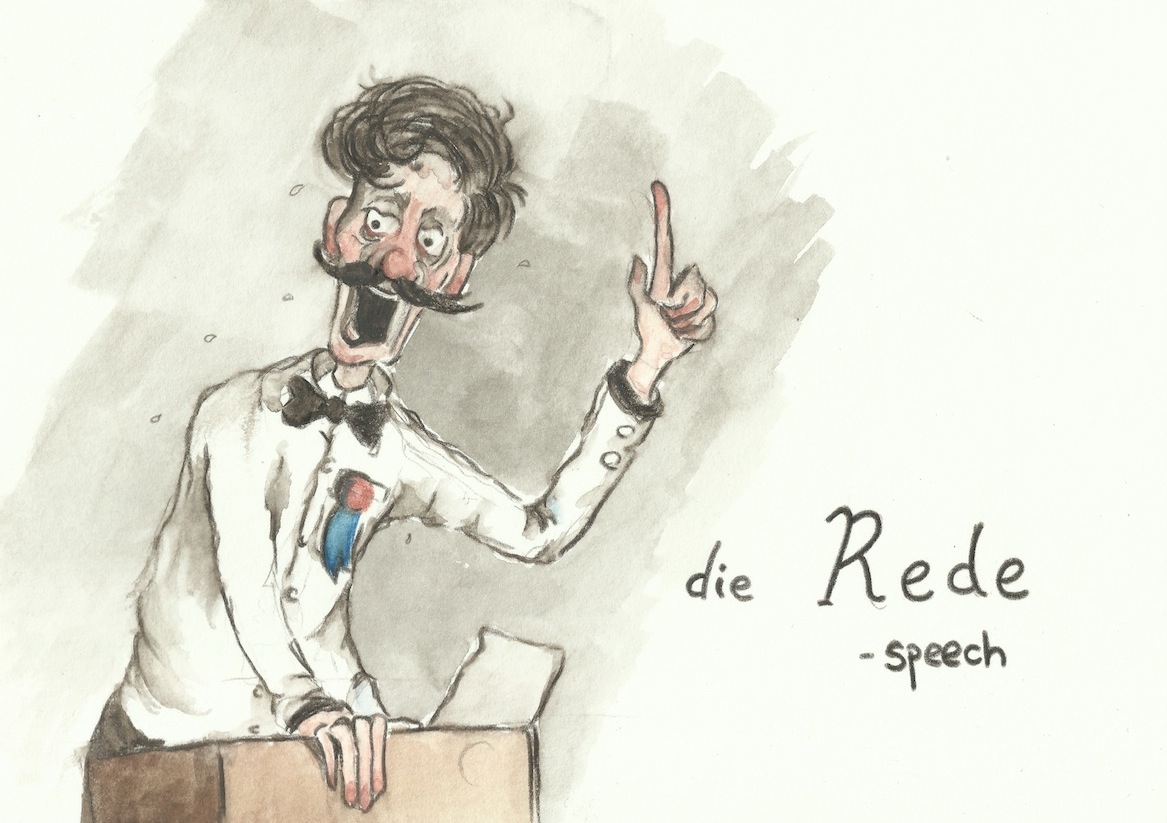 die Rede
-speech